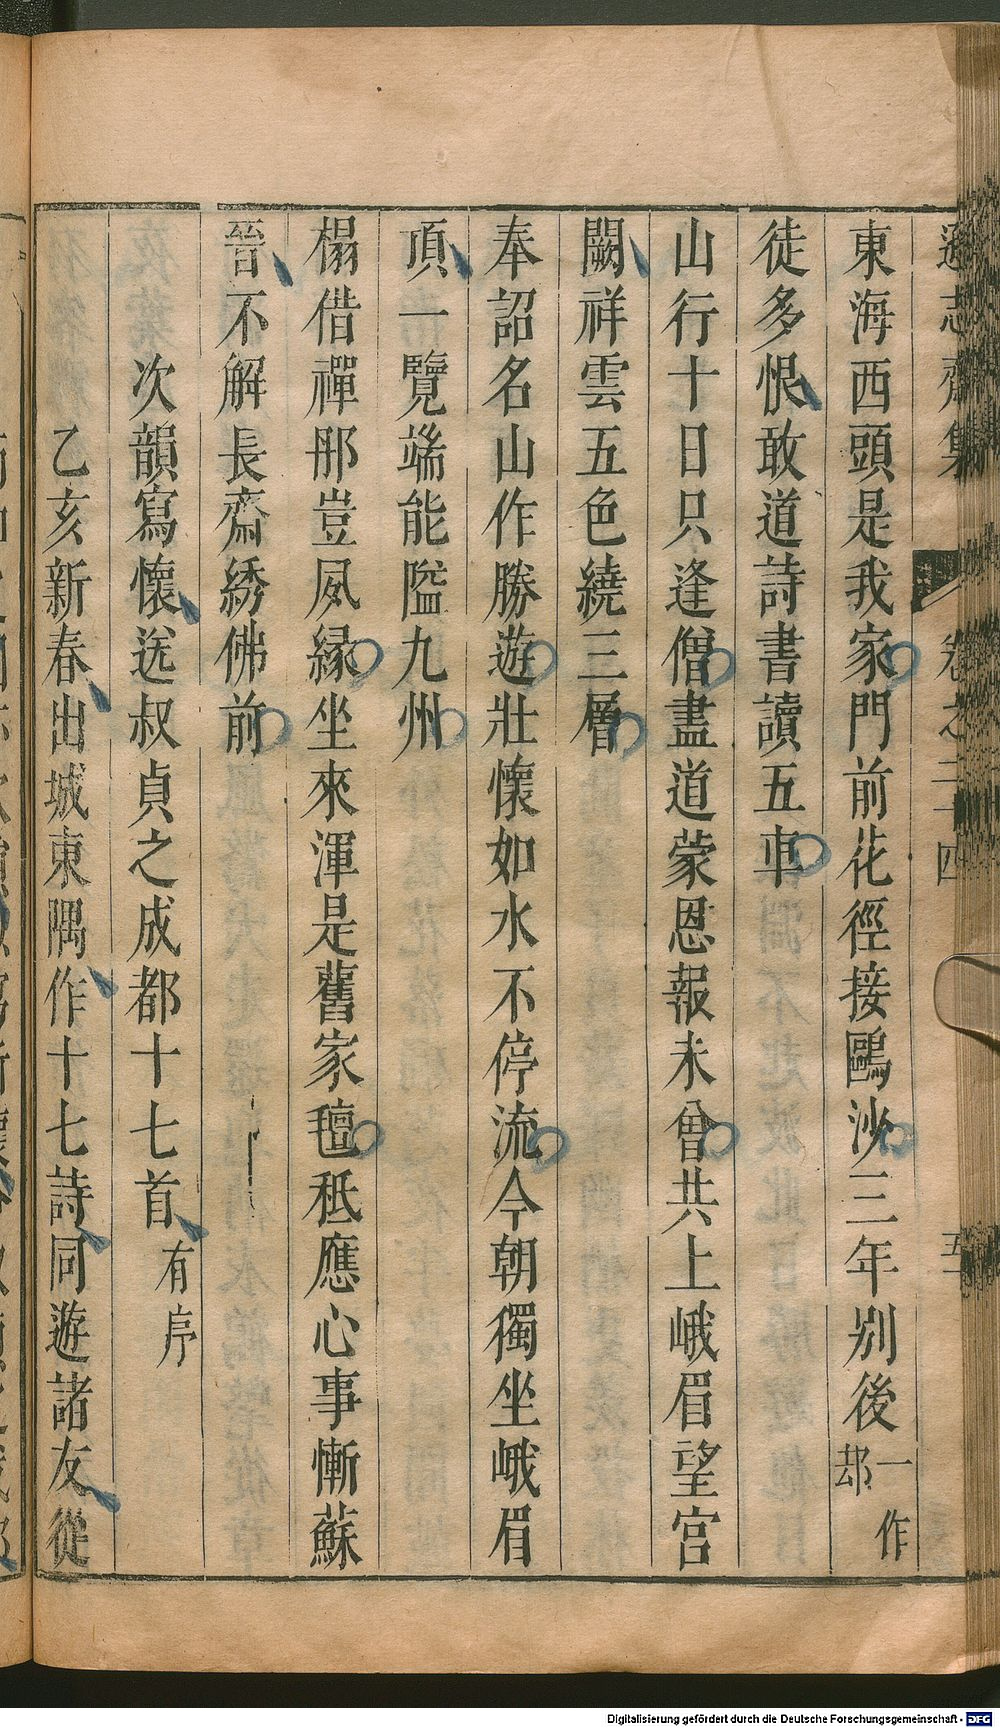 遜志齋集 卷之二十四 五
東海西頭是我家門前花徑接鷗沙三年别後一作却
徒多恨敢道詩書讀五車
山行十日只逢僧盡道蒙恩報未曾共上峨眉望宮
闕祥雲五色繞三層
奉詔名山作勝遊壯懷如水不停流今朝獨坐峨眉
頂一覽端能隘九州
榻借禪那豈夙緣坐來渾是舊家氊秪應心事慚蘇
晉不解長齋綉佛前
次韻寫懷送叔貞之成都十七首有序
乙亥新春出城東隅作十七詩同遊諸友從
Digitalisierung gefördert durch die Deutsche Forschungsgemeinschaft - DFG